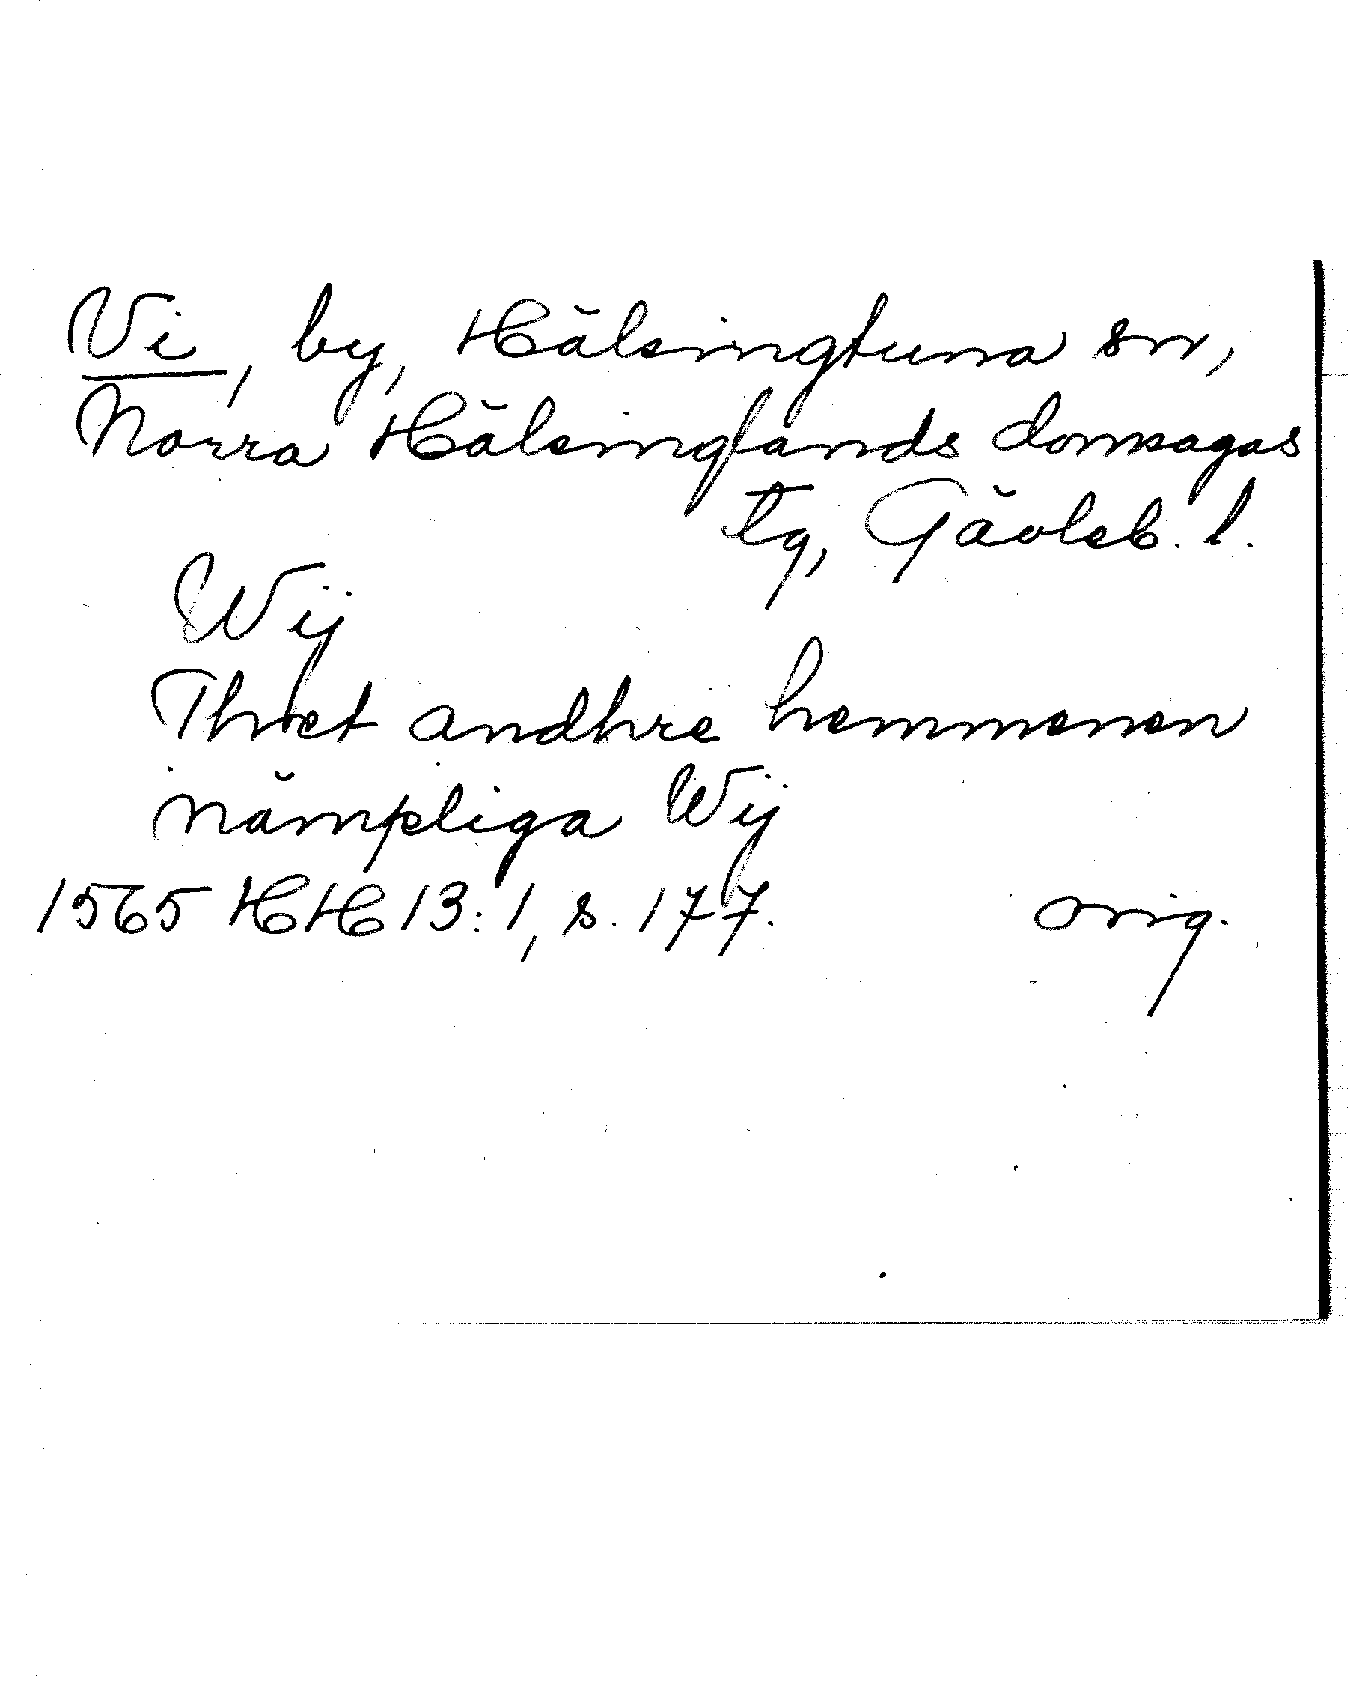 Vi, by, Hälsingtuna sn,
Norra Hälsinglands domsagas
tg, Gävleb. l.
Wij
Thet andhre hemmenen
nämpliga Wij
1565 HH 13:1, s. 177. orig.